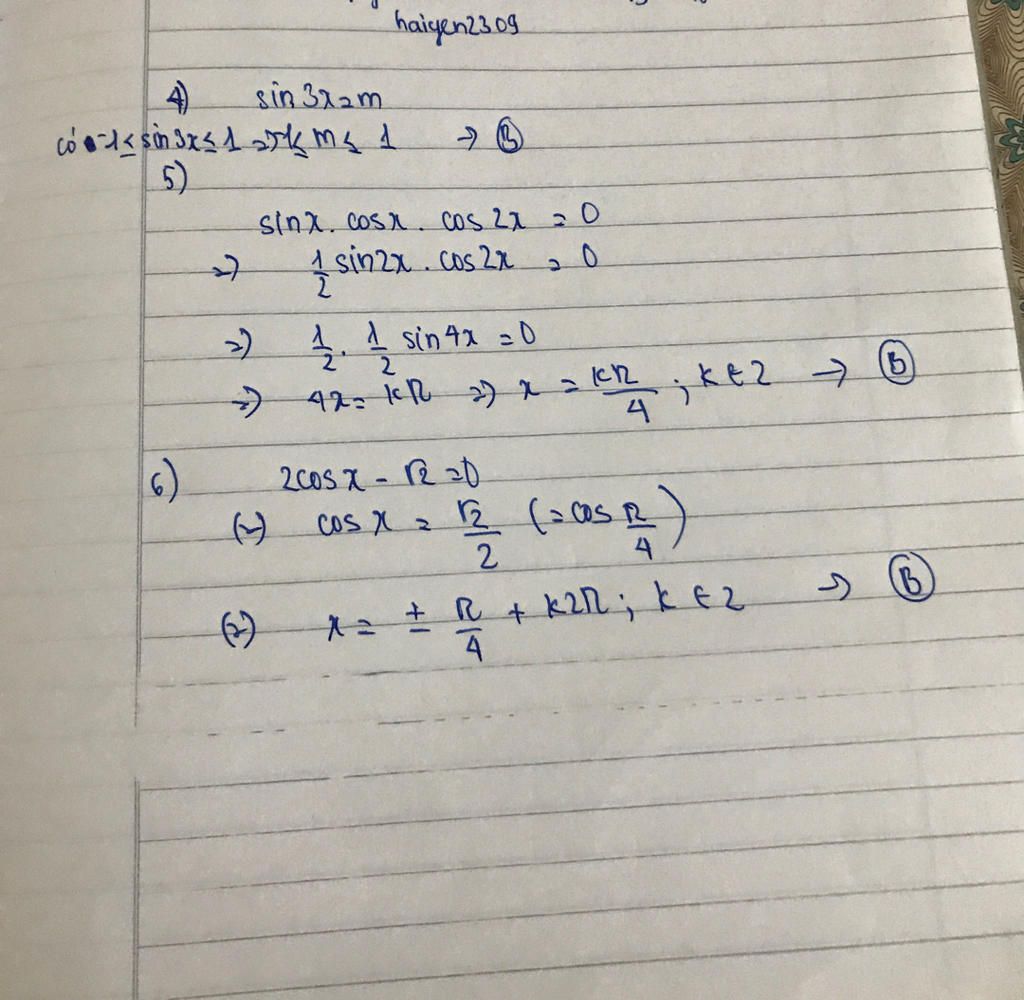 haiyen2309
4) sin3x=m
có -1≤sin3x≤1 => -1≤ m ≤ 1 → B
5)
sinx. cosx. cos2x = 0
=> 1/2 sin2x. cos2x = 0
=> 1/2. 1/2 sin4x = 0
=> 4x = kπ => x = kπ/4 ; k∈Z → B
6) 2cosx - √2 = 0
(=) cosx = √2/2 (= cos π/4)
(=) x = ± π/4 + k2π; k∈Z → B